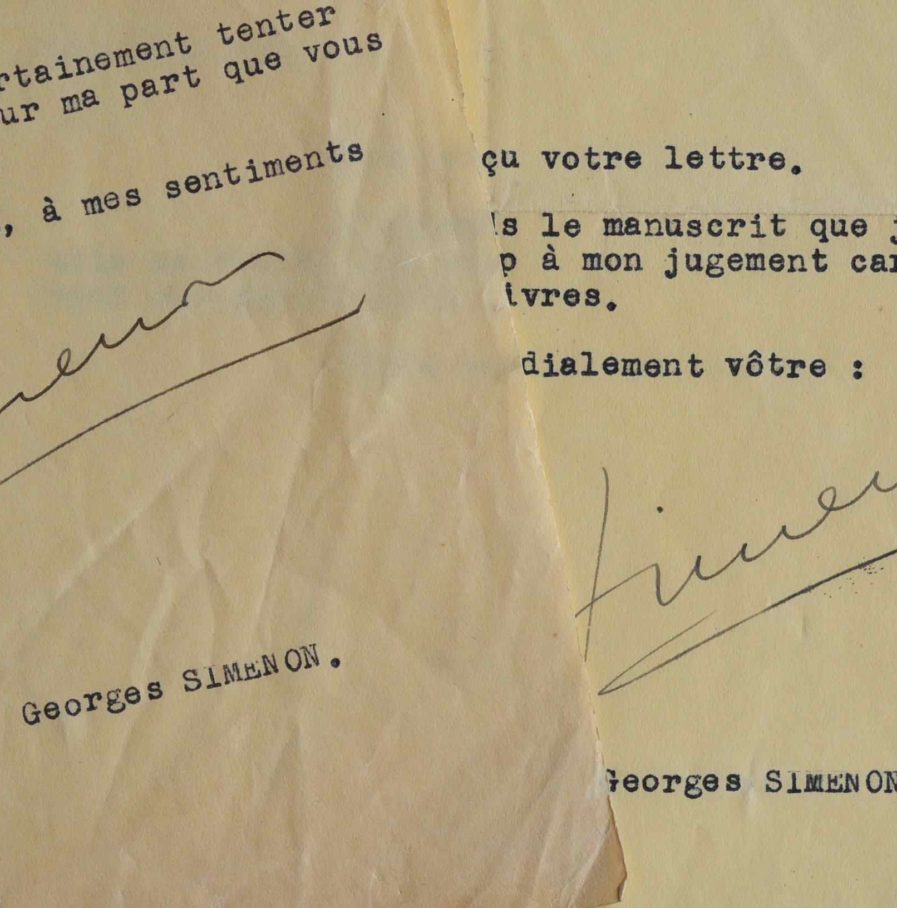 rtainement tenter
ur ma part que vous
, à mes sentiments
Georges SIMENON.
çu votre lettre.
s le manuscrit que j
p à mon jugement car
ivres.
dialement vôtre :
Simen
Georges SIMENON